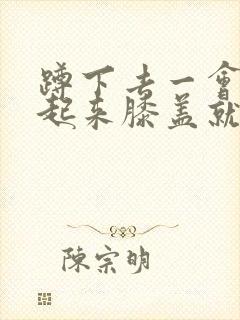 蹲下去一會
起来膝盖就
陳宗明